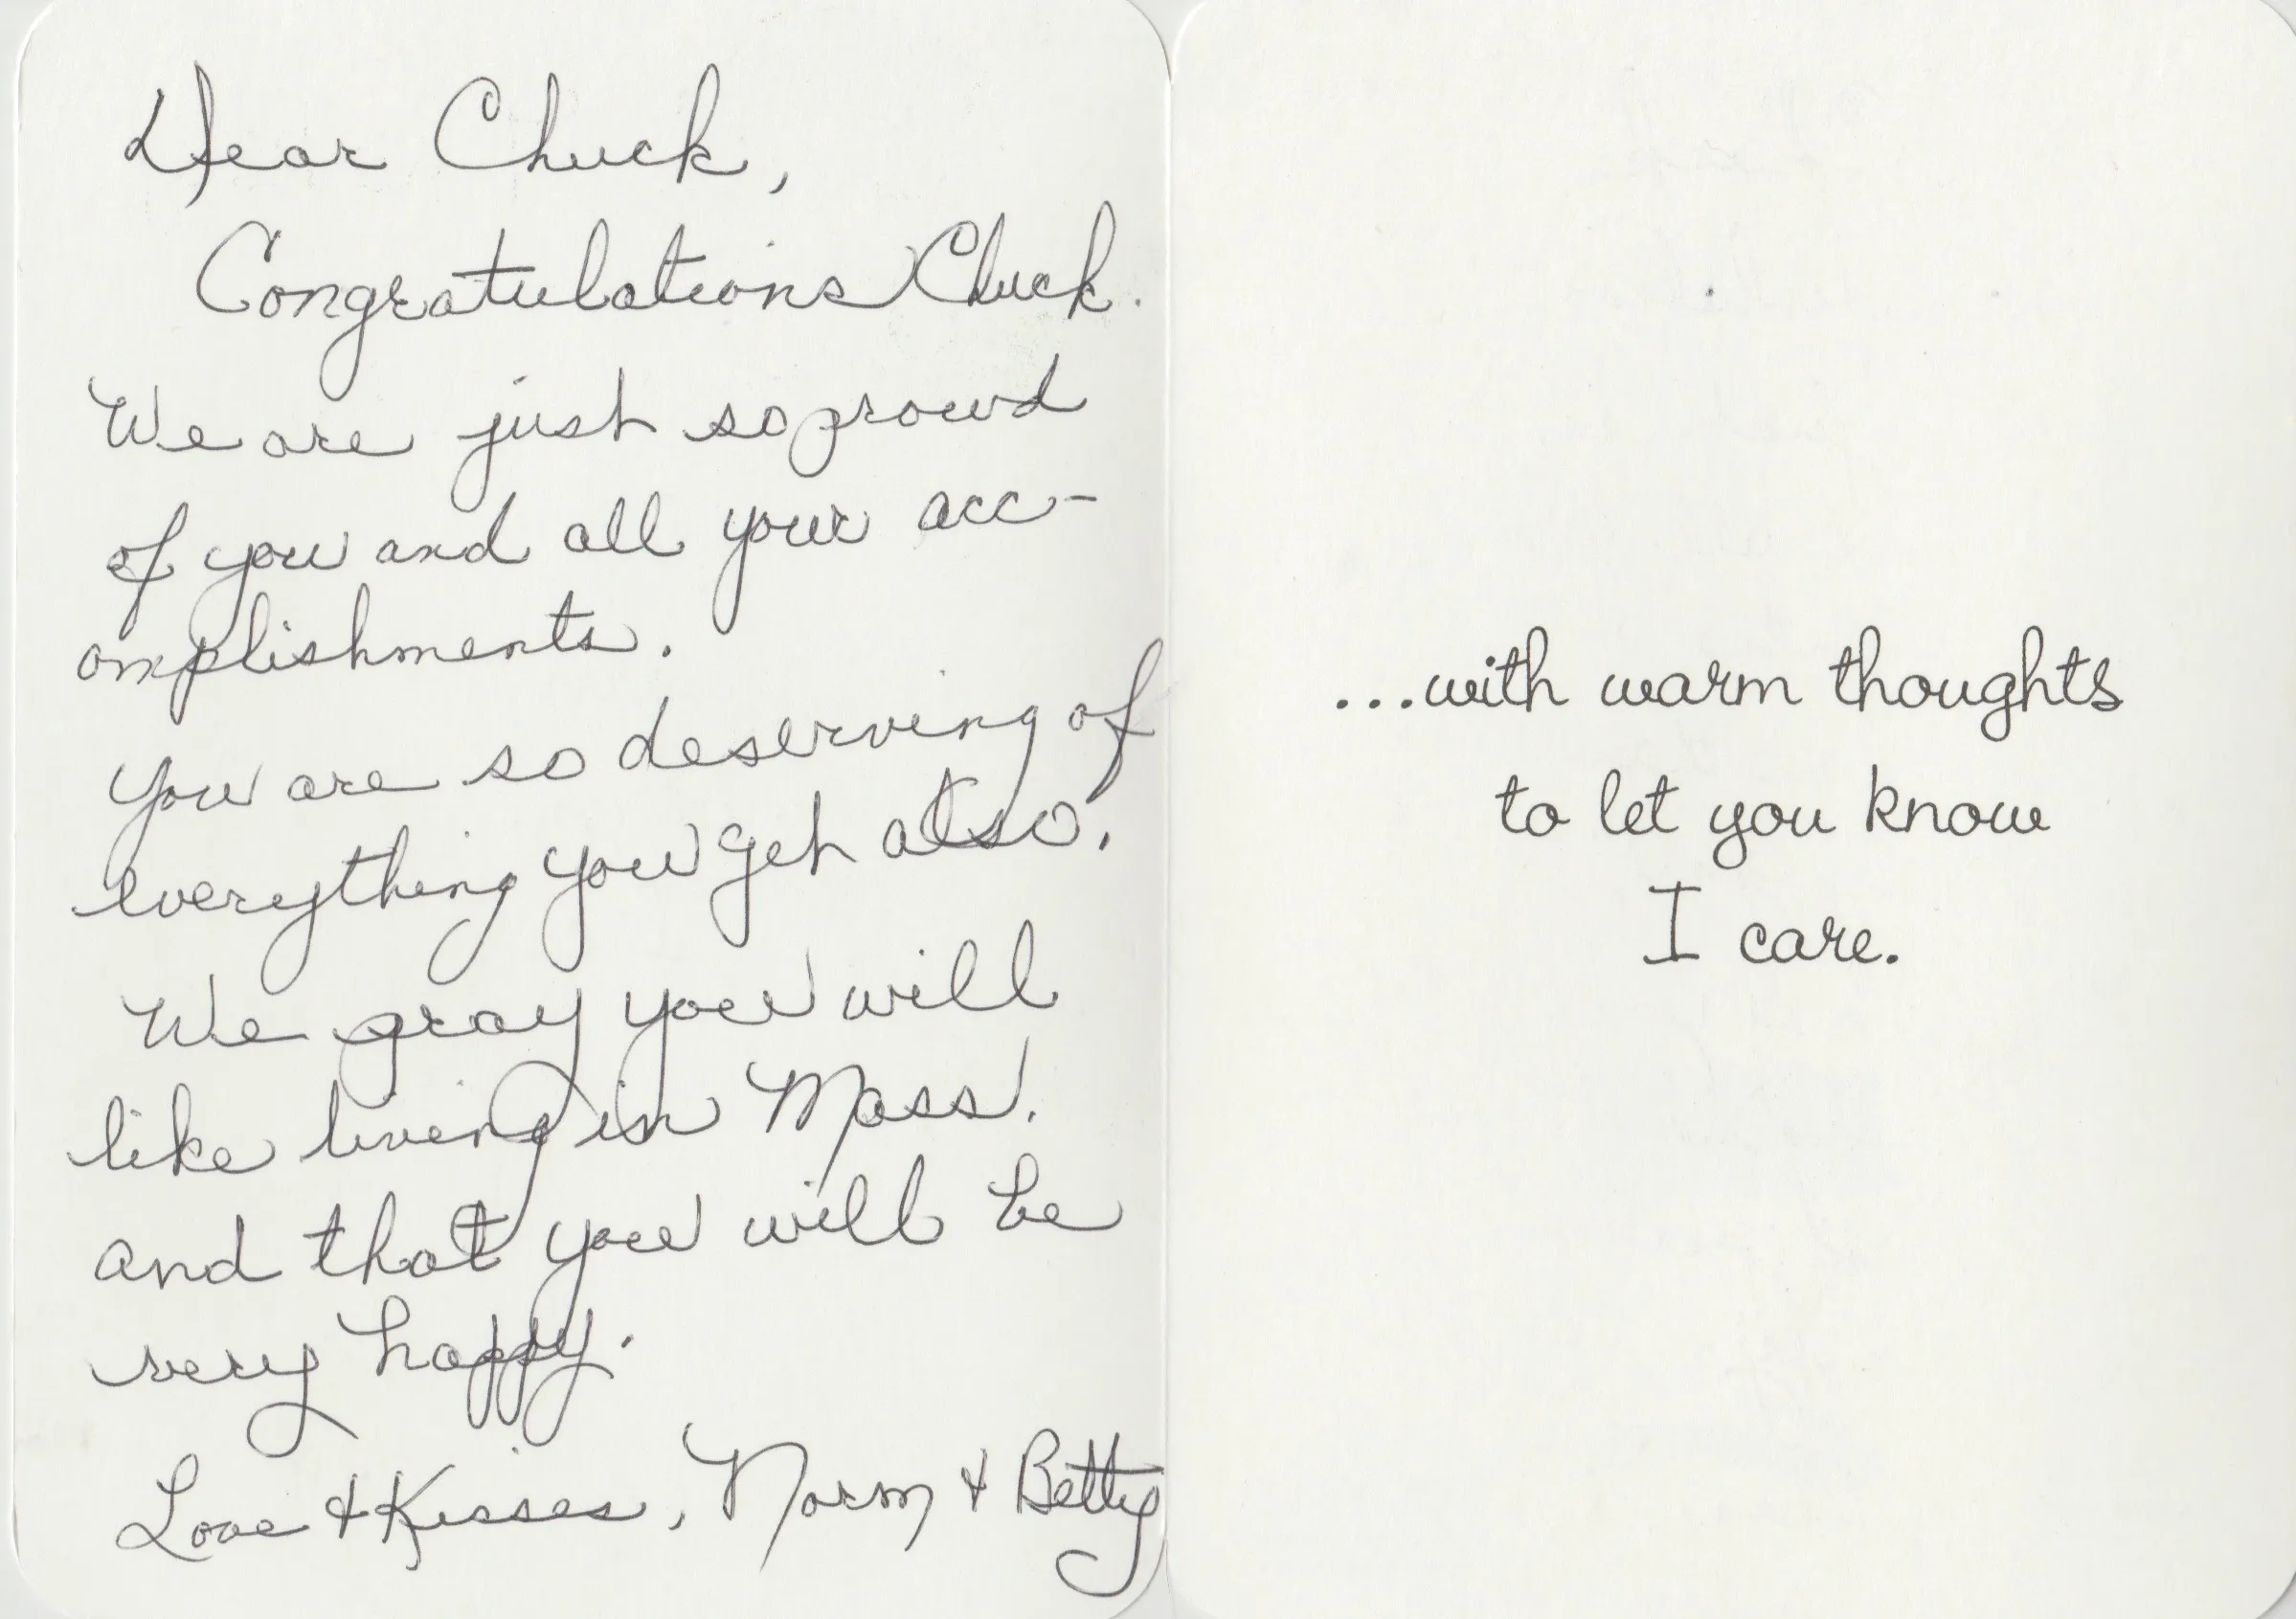 Dear Chuck,
Congratulations Chuck.
We are just so proud
of you and all your acc-
omplishments.
You are so deserving of
everything you get also.
We pray you will
like living in Mass.
and that you will be
very happy.
Love & Kisses, Norm & Betty
...with warm thoughts
to let you know
I care.